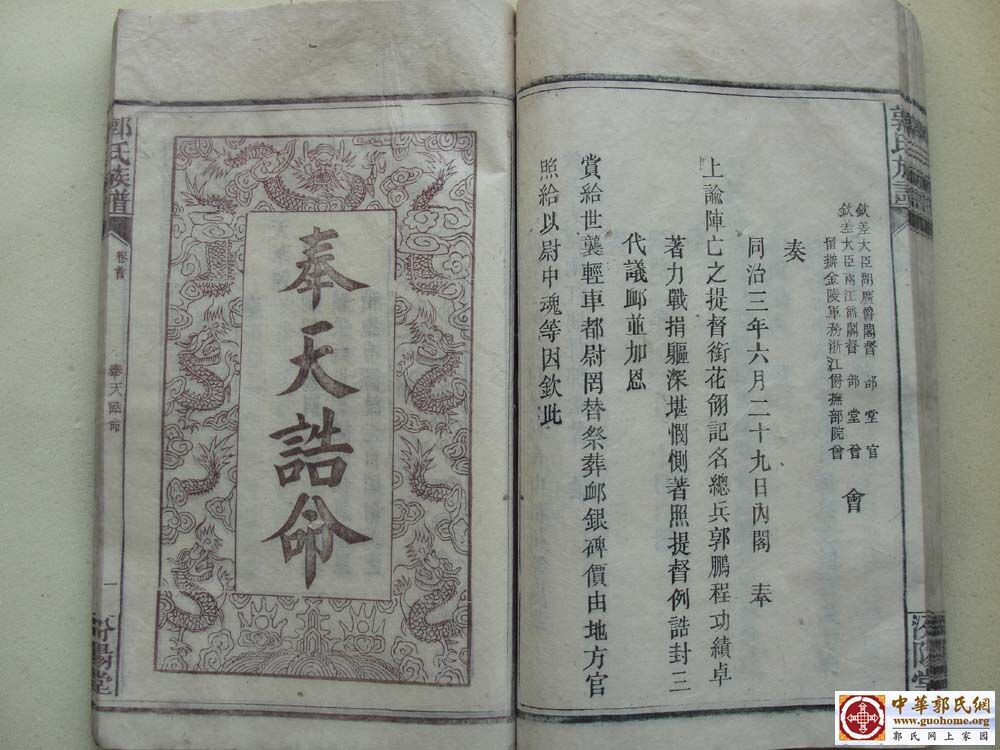 郭氏族譜
汾陽堂
欽差大臣湖廣爵閣督部堂官
欽差大臣兩江爵閣督部堂曾
留辦金陵軍務浙江爵撫部院曾
會
奏
同治三年六月二十九日內閣 奉
上諭陣亡之提督銜花翎記名總兵郭鵬程功績卓
著力戰捐驅深堪憫惻著照提督例誥封三
代議䘏並加恩
賞給世襲輕車都尉罔替祭葬䘏銀碑價由地方官
照給以尉中魂等因欽此
奉天誥命
郭氏族譜
卷首
奉天誥命
一
汾陽堂
中華郭氏網
www.guohome.org
郭氏網上家園